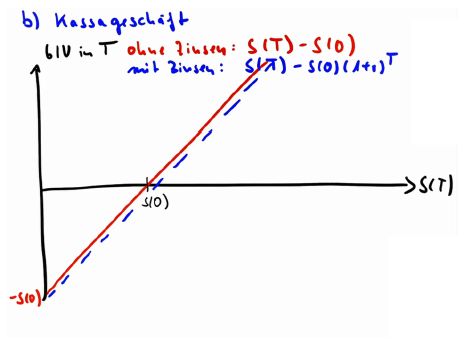 b) Kassageschäft
G/V in T ohne Zinsen: S(T) - S(0)
mit Zinsen: S(T) - S(0) (1+r)^T
S(T)
S(0)
-S(0)